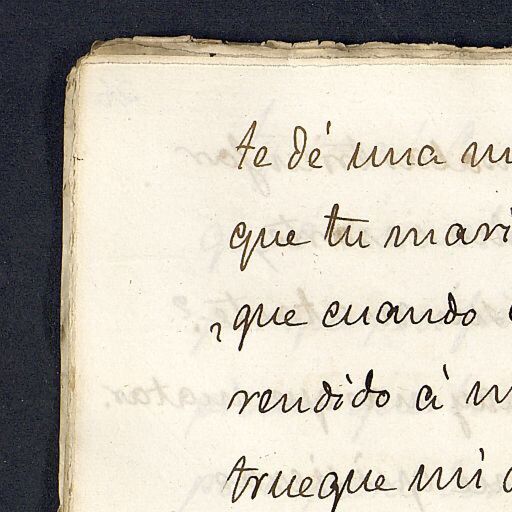 te dé una
que tu mari
que cuando
rendido á
trueque mi